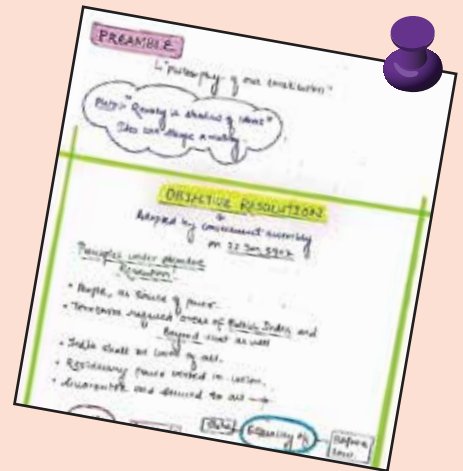 PREAMBLE
"Philosophy of our Constitution"
Plato:- "Reality is shadow of ideas"
Idea can shape reality.
OBJECTIVE RESOLUTION
Adopted by constituent assembly
on 22 Jan,
Principles under objective
Resolution:
• People, as source of power.
• Territories required areas of British India and
Beyond that as well
• India shall be of all.
• Residuary power vested in
• Guarantee and secured to all →
Equality of
Before
Law.